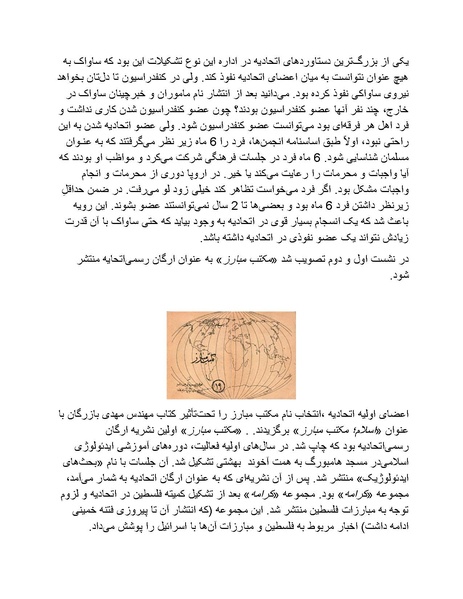 یکی از بزرگ‌ترین دستاوردهای اتحادیه در اداره این نوع تشکیلات این بود که ساواک به
هیچ عنوان نتوانست به میان اعضای اتحادیه نفوذ کند. ولی در کنفدراسیون تا دل‌تان بخواهد
نیروی ساواکی نفوذ کرده بود. می‌دانید بعد از انتشار نام ماموران و خبرچینان ساواک در
خارج، چند نفر آنها عضو کنفدراسیون بودند؟ چون عضو کنفدراسیون شدن کاری نداشت و
فرد اهل هر فرقه‌ای بود می‌توانست عضو کنفدراسیون شود. ولی عضو اتحادیه شدن به این
راحتی نبود، اولاً طبق اساسنامه انجمن‌ها، فرد را 6 ماه زیر نظر می‌گرفتند که به عنوان
مسلمان شناسایی شود. 6 ماه فرد در جلسات فرهنگی شرکت می‌کرد و مواظب او بودند که
آیا واجبات و محرمات را رعایت می‌کند یا خیر. در اروپا دوری از محرمات و انجام
واجبات مشکل بود. اگر فرد می‌خواست تظاهر کند خیلی زود لو می‌رفت. در ضمن حداقل
زیرنظر داشتن فرد 6 ماه بود و بعضی‌ها تا 2 سال نمی‌توانستند عضو بشوند. این رویه
باعث شد که یک انسجام بسیار قوی در اتحادیه به وجود بیاید که حتی ساواک با آن قدرت
زیادش نتواند یک عضو نفوذی در اتحادیه داشته باشد.
در نشست اول و دوم تصویب شد «مکتب مبارز» به عنوان ارگان رسمی‌اتحایه منتشر
شود.
مکتب مبارز
۱۹
اعضای اولیه اتحادیه ،انتخاب نام مکتب مبارز را تحت‌تأثیر کتاب مهندس مهدی بازرگان با
عنوان «اسلام؛ مکتب مبارز» برگزیدند. . «مکتب مبارز» اولین نشریه ارگان
رسمی‌اتحادیه بود که چاپ شد. در سال‌های اولیه فعالیت، دوره‌های آموزشی ایدئولوژی
اسلامی‌در مسجد هامبورگ به همت آخوند بهشتی تشکیل شد. آن جلسات با نام «بحث‌های
ایدئولوژیک» منتشر شد. پس از آن نشریه‌ای که به عنوان ارگان اتحادیه به شمار می‌آمد،
مجموعه «کرامه» بود. مجموعه «کرامه» بعد از تشکیل کمیته فلسطین در اتحادیه و لزوم
توجه به مبارزات فلسطین منتشر شد. این مجموعه (که انتشار آن تا پیروزی فتنه خمینی
ادامه داشت) اخبار مربوط به فلسطین و مبارزات آن‌ها با اسرائیل را پوشش می‌داد.